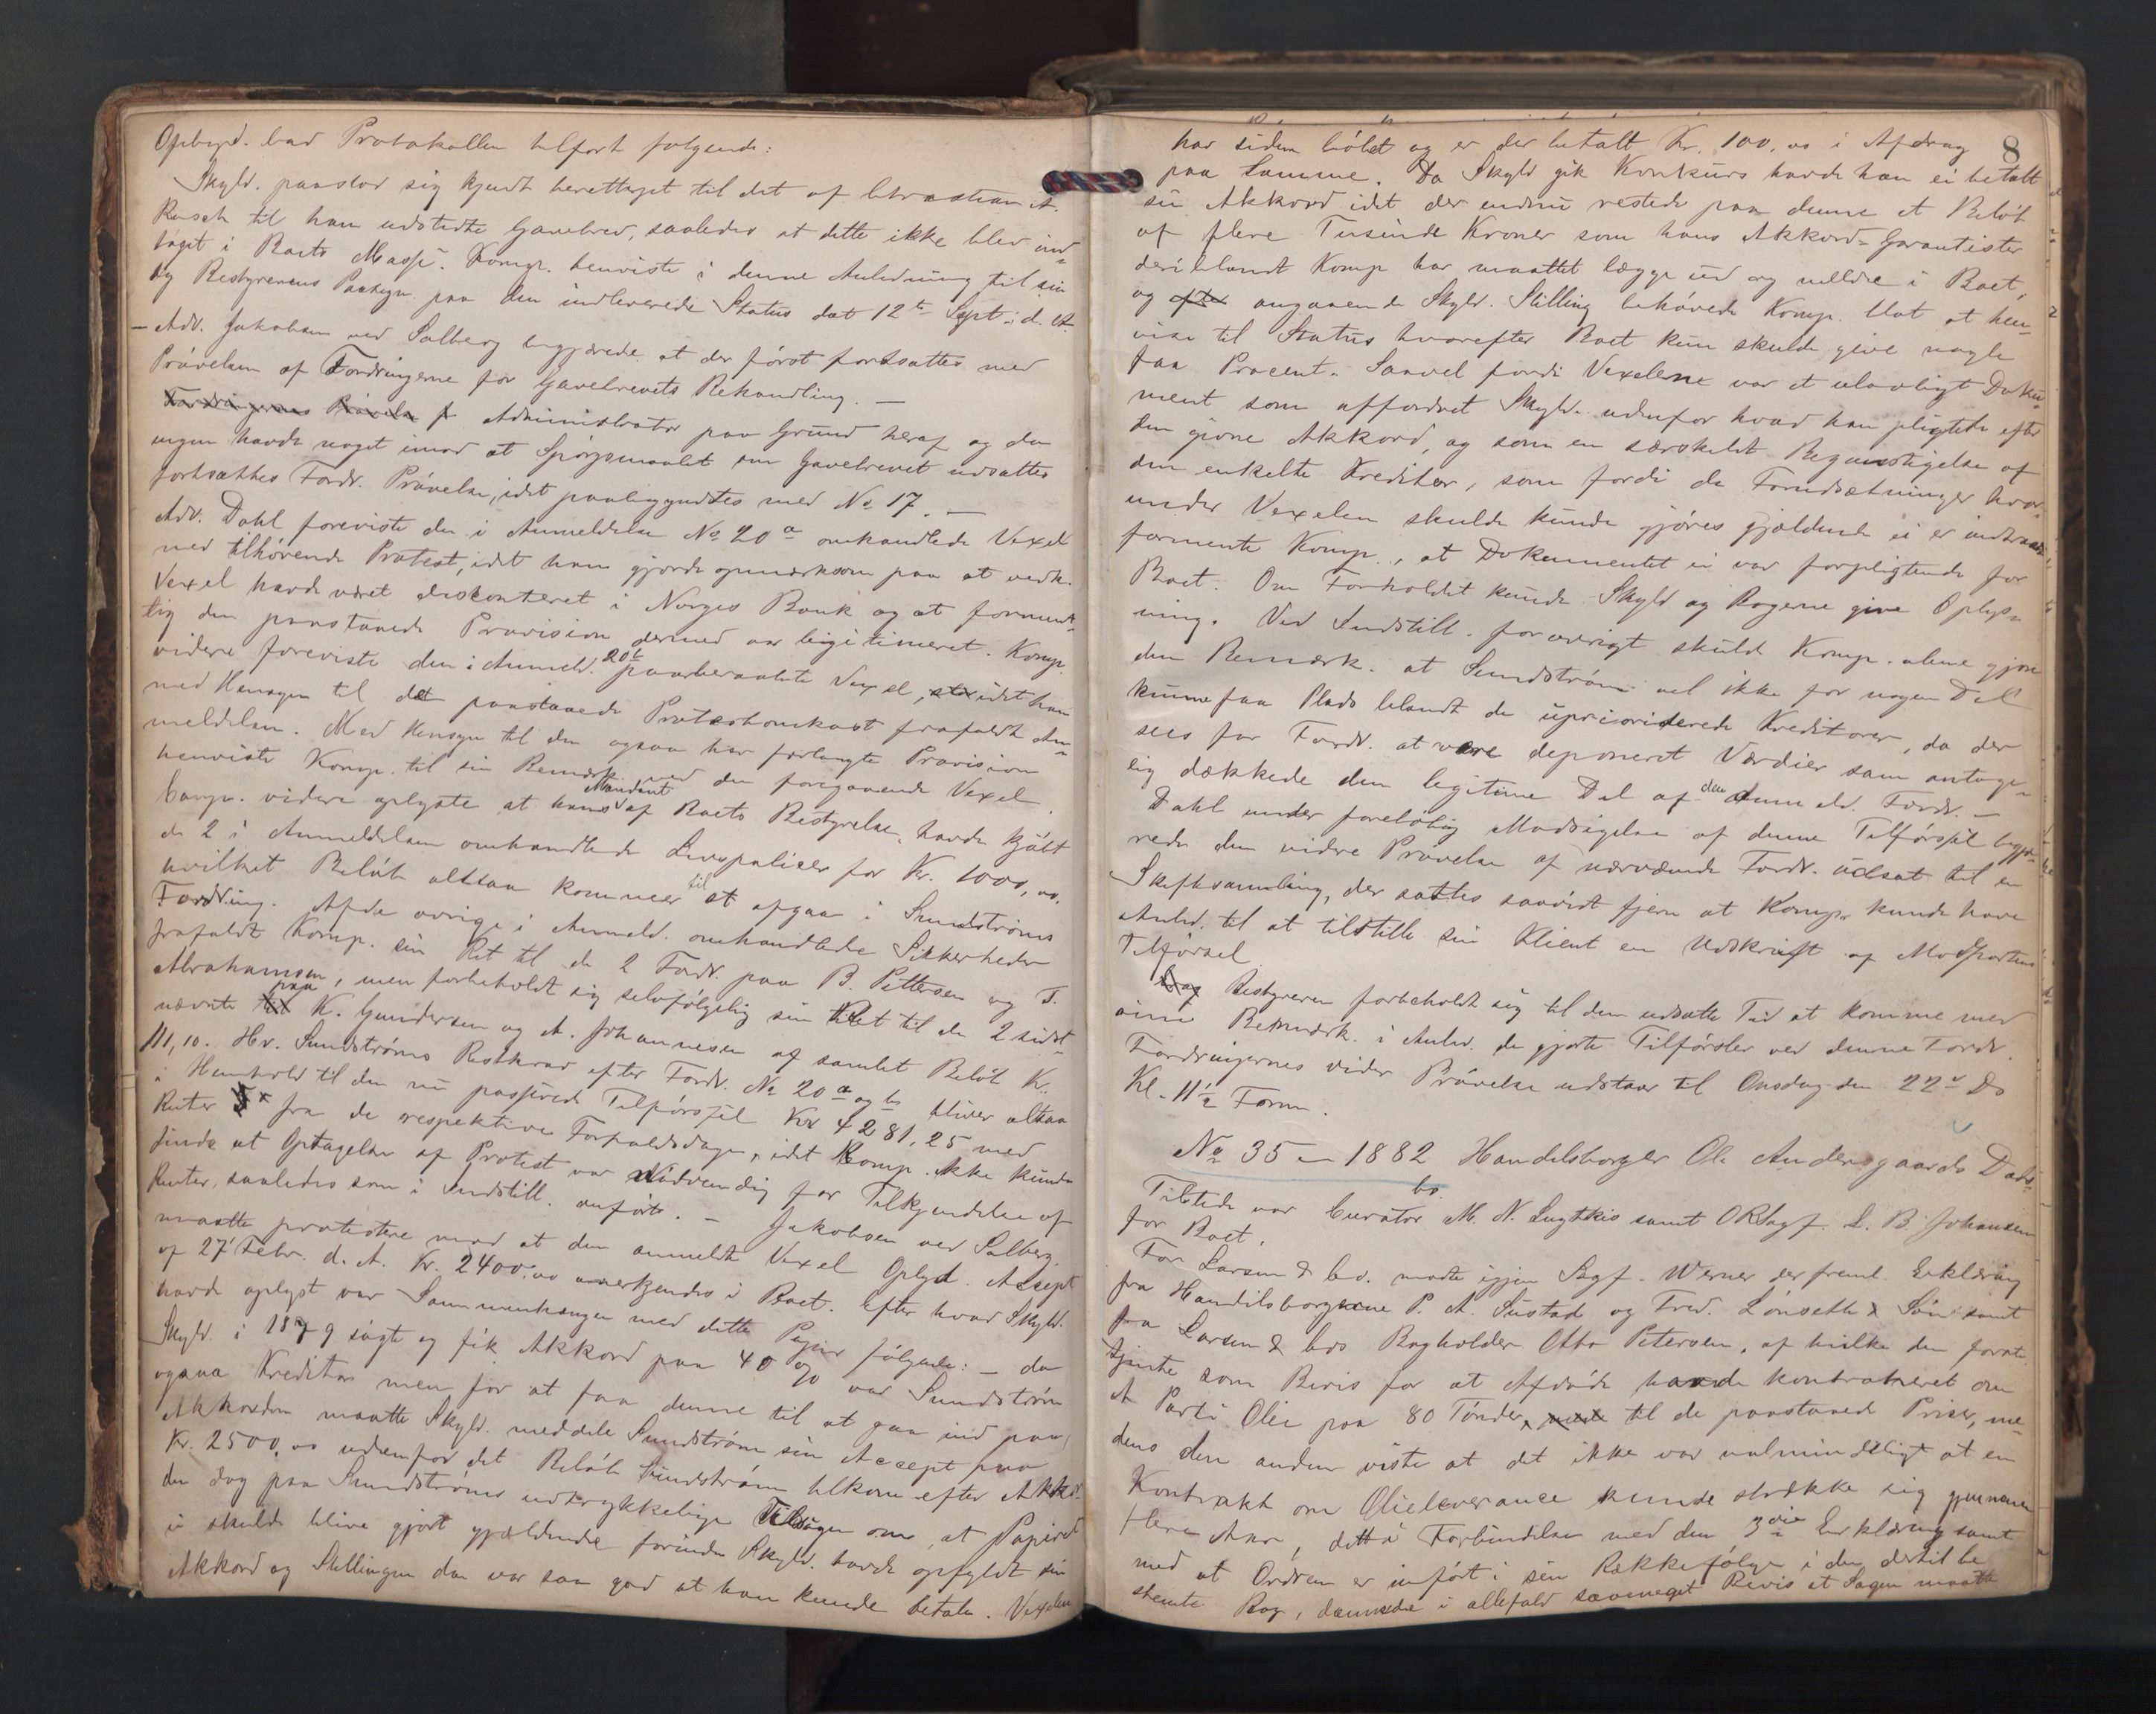 Opbyd. bad Protokollen tilført følgende:
Skyld. paastod sig kjendt berettiget til det af Christian A.
Rusch til ham udstedte Gavebrev, saaledes at dette ikke blev ind-
taget i Boets Masse. Komp. henviste i denne Anledning til sin
og Bestyrerens Paategn. paa den indleverede Status dat 12te Sept. d. A.
– Adv. Jakobsen ved Solberg begjærede at der først fortsattes med
Prøvelsen af Fordringerne før Gavebrevets Behandling. –
Administrator paa Grund heraf og da
ingen havde noget imod at Spørgsmaalet om Gavebrevet udsattes
fortsattes Fordr. Prøvelse, idet paabegyndtes med No 17. –
Adv. Dahl foreviste den i Anmeldelse No 20 a omhandlede Vexel
med tilhørende Protest, idet han gjorde opmærksom paa at vedk.
Vexel havde været diskonteret i Norges Bank og at forment-
lig den paastaaede Provision dermed var legitimeret. Komp.
videre foreviste den i Anmeld. 20b paaberaabte Vexel, idet han
med Hensyn til det paastaaede Protestomkost frafaldt An-
meldelsen. Med Hensyn til den ogsaa her forlangte Provision
henviste Komp. til sin Bemærk. ved den foregaaende Vexel.
Comp. videre oplyste at hans Mandant af Boets Bestyrelse havde kjøbt
de 2 i Anmeldelsen omhandlede Livspolicer for Kr. 1000,00,
hvilket Beløb altsaa kommer til at afgaa i Sundstrøms
Fordring. Af de øvrige i Anmeld. omhandlede Sikkerheder
frafaldt Komp. sin Ret til de 2 Fordr. paa B. Pettersen og T.
Abrahamsen, men forbeholdt sig selvfølgelig sin Ret til de 2 sidst-
nævnte paa K. Gundersen og A. Johannesen af samlet Beløb Kr.
111,10. Hr. Sundstrøms Restkrav efter Fordr. No 20 a og b bliver altsaa
i Henhold til den nu passerede Tilførsel Kr 4281,25 med
Renter fra de respektive Forfaldsdage, idet Komp. ikke kunde
finde at Optagelse af Protest var nødvendig for Tilkjendelse af
Renter, saaledes som i Indstill. anført. – Jakobsen ved Solberg
maatte protestere mod at den anmeldte Vexel Oplyd. Accept
af 27' Febr. d. A. Kr. 2400,00 anerkjendes i Boet. Efter hvad Skyld.
havde oplyst var Sammenhængen med dette Papir følgende: – da
Skyld. i 1879 søgte og fik Akkord paa 40 % var Sundstrøm
ogsaa Kreditor men for at faa denne til at gaa ind paa
Akkorden maatte Skyld. meddele Sundstrøm sin Accept paa
Kr. 2500,00 udenfor det Beløb Sundstrøm tilkom efter Akkor-
den dog paa Sundstrøms udtrykkelige Tilsagn om, at Papiret
ei skulde blive gjort gjældende førinden Skyld. havde opfyldt sin
Akkord og Stillingen da var saa god at han kunde betale. Vexelen
8
har siden løbet og er der betalt Kr. 100,00 i Afdrag
paa Samme. Da Skyld gik Konkurs havde han ei betalt
sin Akkord idet der endnu restede paa denne et Beløb
af flere Tusinde Kroner som hans Akkord-Garantister
deriblandt Komp har maattet lægge ud og melde i Boet,
og angaaende Skyld. Stilling behøvede Komp. blot at hen-
vise til Status hvorefter Boet kun skulde give nogle
faa Procent. Saavel fordi Vexelerne var et ulovligt Doku-
ment som affordret Skyld. udenfor hvad han pligtede efter
den givne Akkord, og som en særskilt Begunstigelse af
den enkelte Kreditor, som fordi de Forudsætninger hvor-
under Vexelen skulde kunde gjøres gjældende ei er indtraadt
formente Komp., at Dokumentet ei var forpligtende for
Boet. Om Forholdet kunde Skyld og Bøgerne give Oplys-
ning. Ved Indstill. forøvrigt skuld Komp. alene gjøre
den Bemærk. at Sundstrøm vel ikke for nogen Del
kunne faa Plads blandt de uprioriterede Kreditorer, da der
sees for Fordr. at være deponeret Værdier som antage-
lig dækkede den legitime Del af den anm dv. Fordr. –
Dahl under foreløbig Modsigelse af denne Tilførsel begjæ-
rede den videre Prøvelse af nærværende Fordr. udsat til en
Skiftesamling, der sattes saavidt fjern at Komp. kunde have
Anled. til at tilstille sin Klient en Udskrift af Modpartens
Tilførsel
Bestyreren forbeholdt sig til den udsatte Tid at komme med
sine Bemærk. i Anled. de gjorte Tilførsler ved denne Fordr.
Fordringernes vider Prøvelse udstaar til Onsdag den 22de Ds
Kl. 11½ Form.
No 35 – 1882 Handelsborger Ole Andersgaards Dødsbo.
Tilstede var Curator M. N. Lugtkis samt ORSagf. L. B. Johansen
for Boet.
For Larsen & Co. mødte igjen Sagf. Werner der freml. Erklæring
fra Handelsborgerne P. A. Sustad og Fred. Lønseth & Søn samt
fra Larsen & Cos Bogholder Otto Petersen, af hvilke den første
tjente som Bevis for at Afdøde havde kontraheret om
et Parti Olie paa 80 Tønder, til de paastaaede Priser, me-
dens den anden viste at det ikke var ualmindeligt at en
Kontrakt om Olieleverance kunde strække sig gjennem
flere Aar, dette i Forbindelse med den 3die Erklæring samt
med at Ordren er indført i sin Rækkefølge i den dertil be-
stemte Bog, dannede i allefald saameget Bevis at Sagen maatte